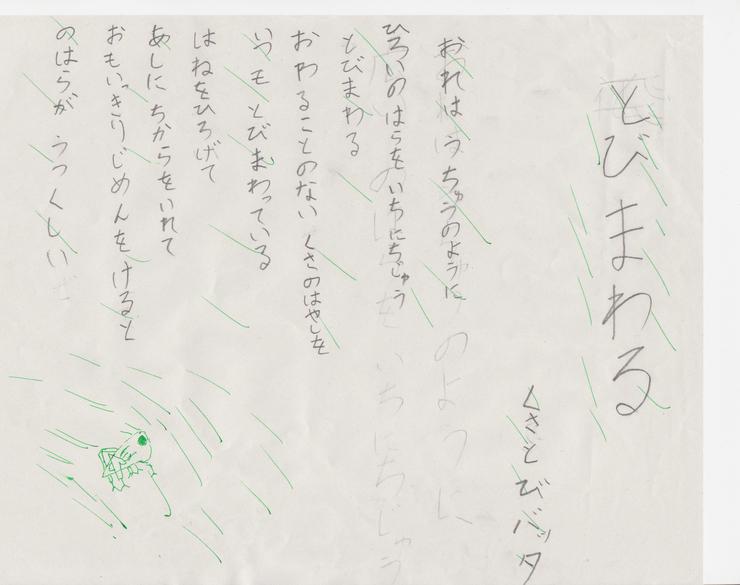 とびまわる
くさとびバッタ
おれは うちゅうのように
ひろいのはらを いちにちじゅう
とびまわる
おわることのない くさのはやしを
いつも とびまわっている
はねをひろげて
あしに ちからをいれて
おもいっきりじめんを けると
のはらが うつくしい